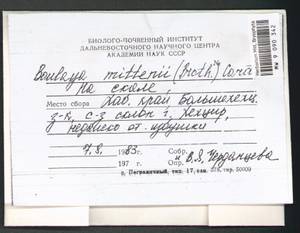 БИОЛОГО-ПОЧВЕННЫЙ ИНСТИТУТ
ДАЛЬНЕВОСТОЧНОГО НАУЧНОГО ЦЕНТРА
АКАДЕМИИ НАУК СССР
Boulaya mittenii (Broth.) Card
На скале,
Место сбора Хаб. край Большехехц.
з-к, с-з склон г. Хехцир,
недалеко от избушки
7.9. 1983 Собр.
197 г. и В.Я. Черданцева
п. Пограничный, тип. 17, зак. тир. 50000
MW 9 090 342